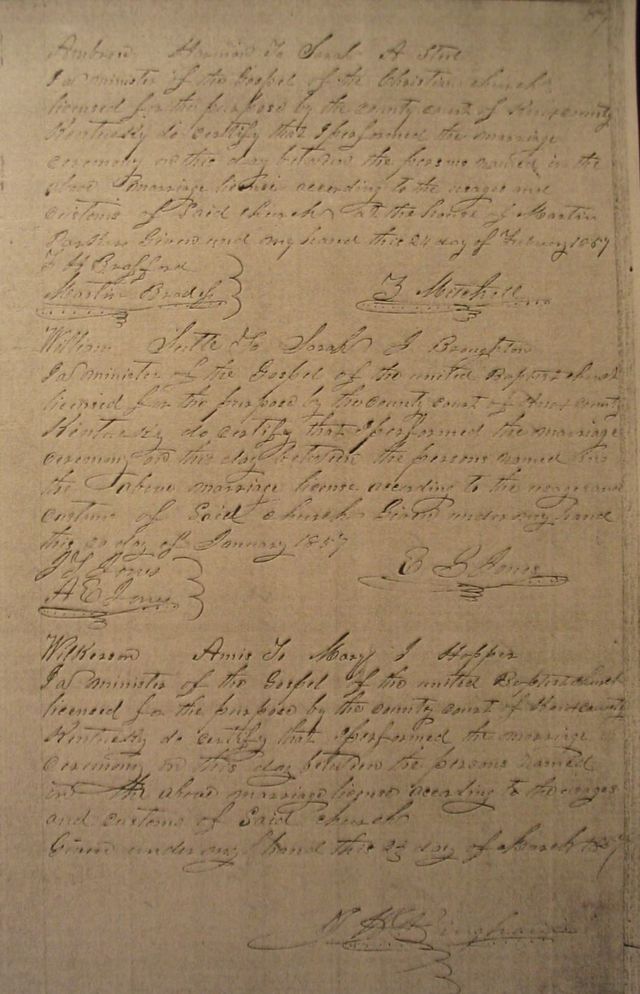 Ambrose To Sarah A Steel
I a minister of the Gospel of the Christian church
licensed for the purpose by the county court of Knox county
Kentucky do certify that I performed the marriage
ceremony on this day between the persons named in the
above marriage license according to the usages and
customs of Said church at the house of Martin
Given under my hand this 24 day of February 1857
Martin
Mitchell
William Tuttle To Sarah J Broughton
I a minister of the Gospel of the united Baptist church
licensed for the purpose by the county court of Knox county
Kentucky do certify that I performed the marriage
ceremony on this day between the persons named in
the above marriage license according to the usages and
customs of Said church Given under my hand
this 20 day of January 1857
J Jones
A E Jones
E Jones
Wilkerson Amis To Mary J Hopper
I a minister of the Gospel of the united Baptist church
licensed for the purpose by the county court of Knox county
Kentucky do certify that I performed the marriage
ceremony on this day between the persons named
in the above marriage license according to the usages
and customs of Said church
Given under my hand this 23 day of March 1857
Bingham